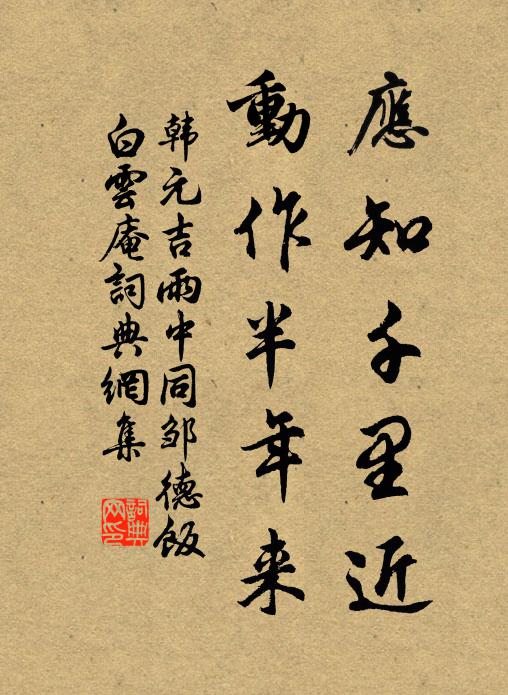 應知千里近
動作半年来
韩元吉雨中同邹德飯
白雲庵詞典網集
詞典
网印